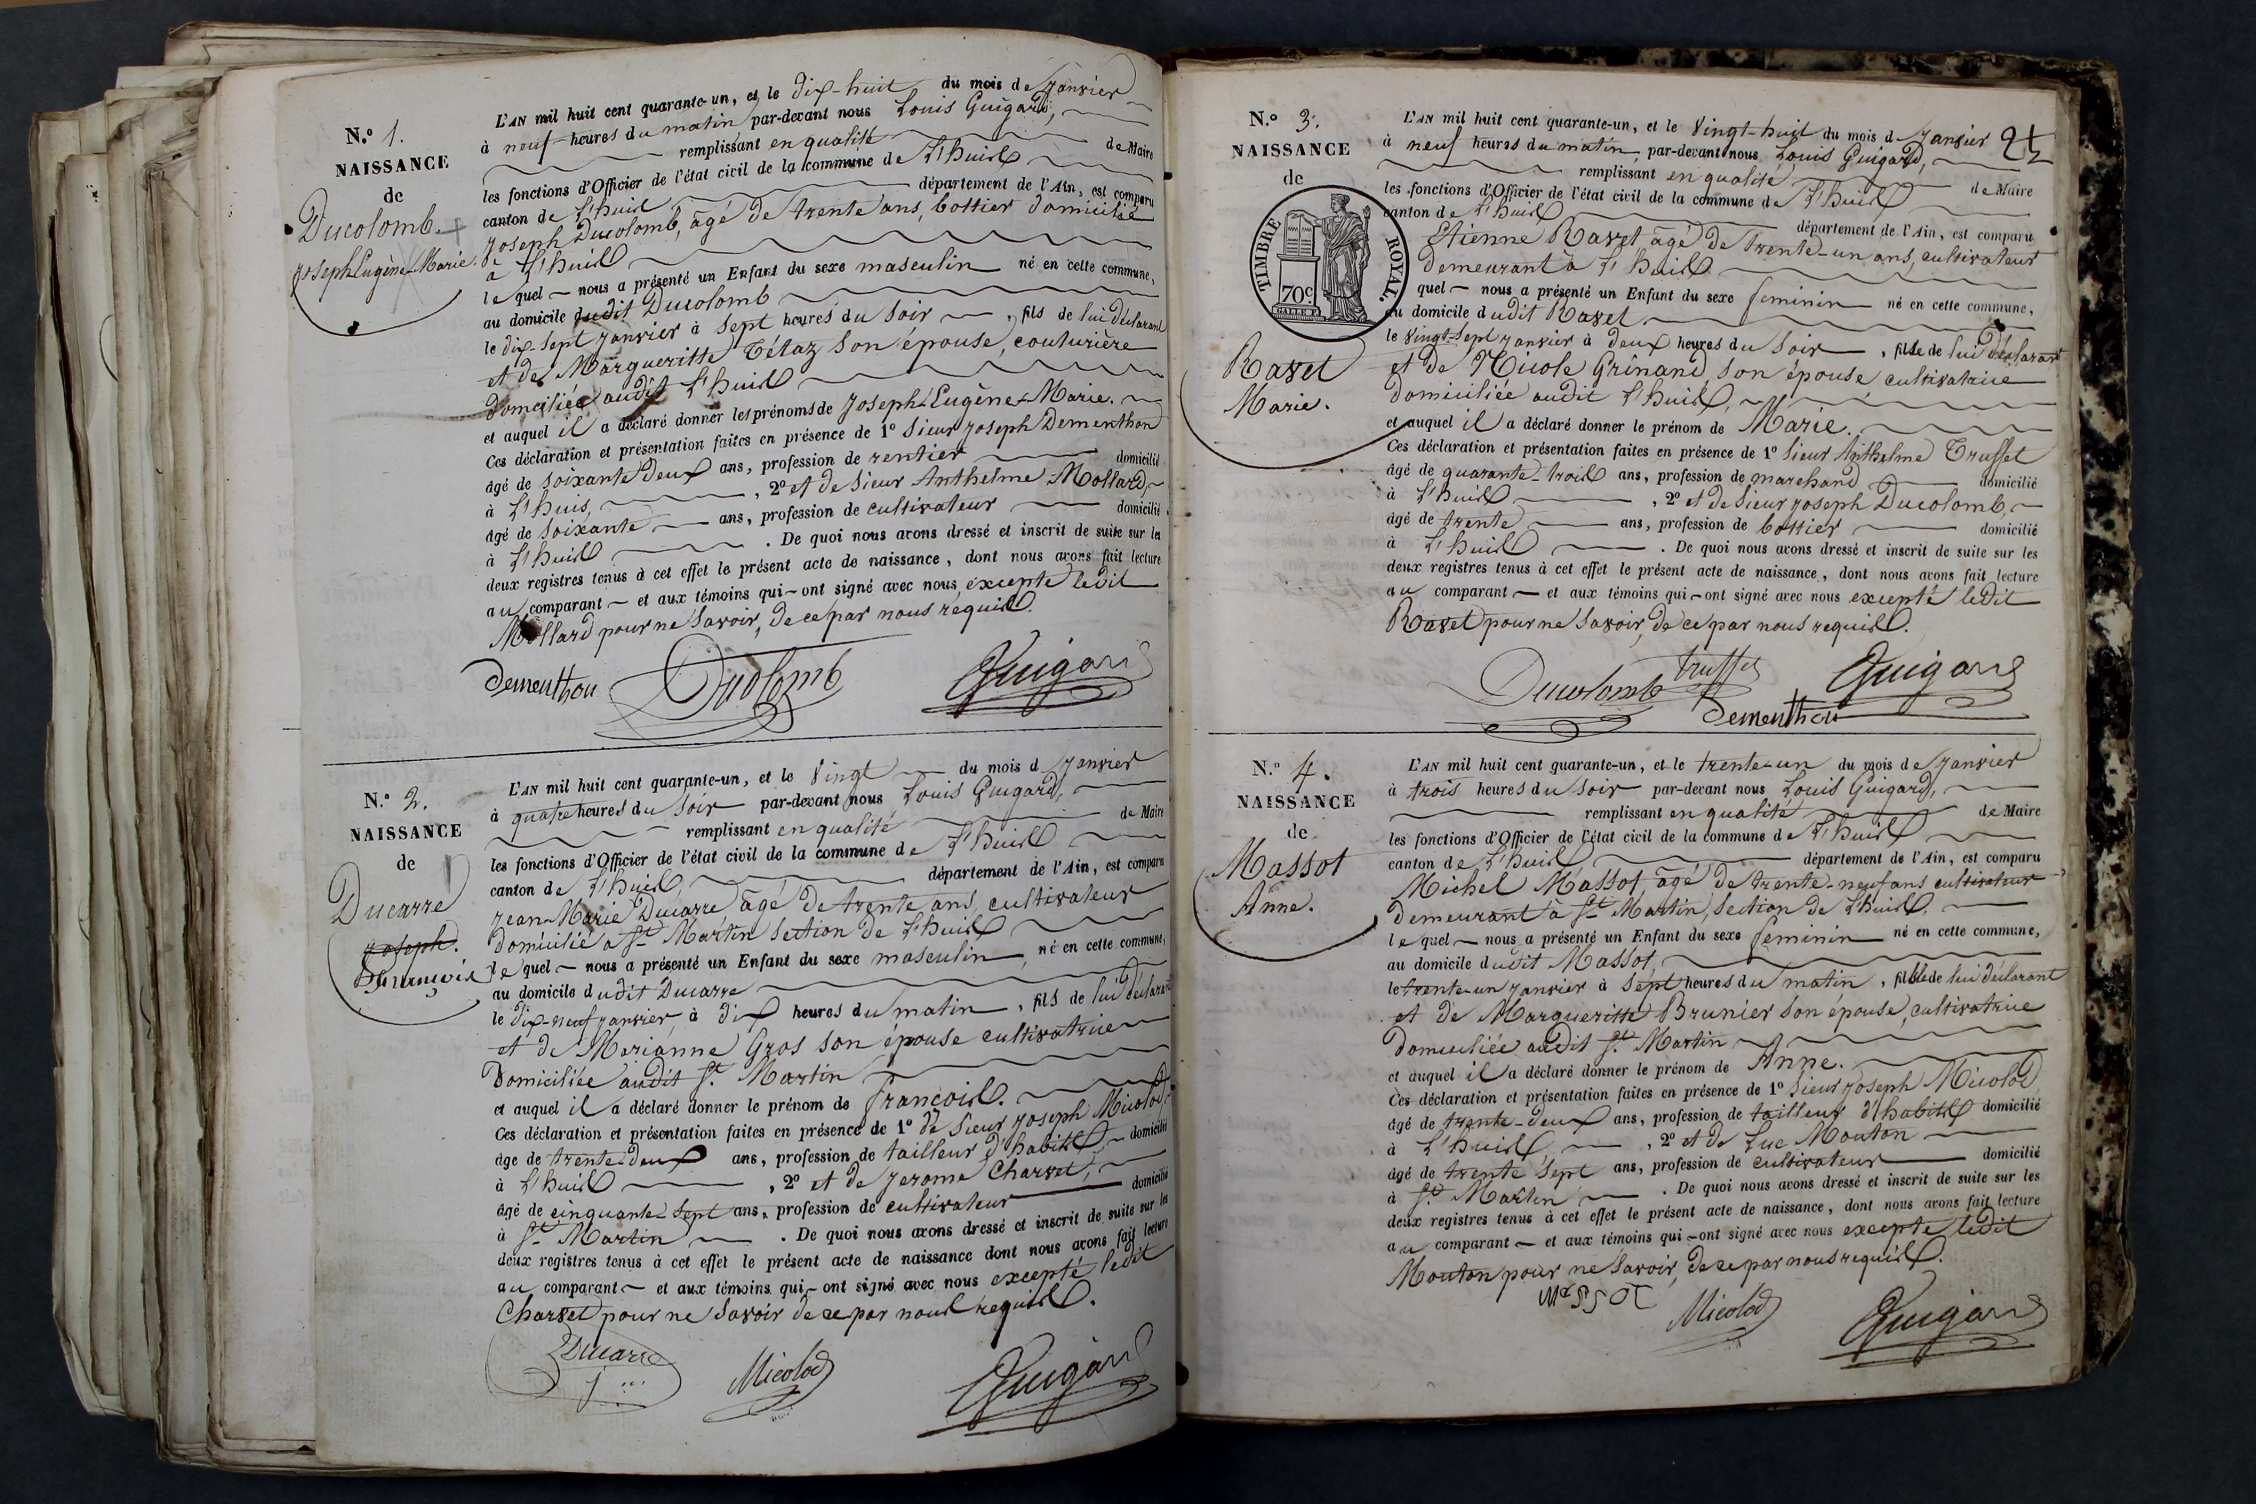 N.o 1.
NAISSANCE
de
Ducolomb
Joseph Eugène Marie.
L'AN mil huit cent quarante-un, et le dix-huit du mois de Janvier
à neuf heures du matin par-devant nous Louis Guigard,
remplissant en qualité de Maire
les fonctions d'Officier de l'état civil de la commune de L'huis
canton de L'huis département de l'Ain, est comparu
Joseph Ducolomb, âgé de trente ans, bottier domicilié
à L'huis
lequel nous a présenté un Enfant du sexe masculin né en cette commune,
au domicile dudit Ducolomb
le dix-sept Janvier à sept heures du soir, fils de lui déclarant
et de Margueritte Tétaz son épouse, couturière
domiciliée audit L'huis
et auquel il a déclaré donner les prénoms de Joseph-Eugène-Marie.
Ces déclaration et présentation faites en présence de 1o Sieur Joseph Dementhon
âgé de soixante deux ans, profession de rentier domicilié
à L'huis, , 2o et de Sieur Anthelme Mollard,
âgé de soixante ans, profession de cultivateur domicilié
à L'huis . De quoi nous avons dressé et inscrit de suite sur les
deux registres tenus à cet effet le présent acte de naissance, dont nous avons fait lecture
au comparant et aux témoins qui ont signé avec nous, excepté ledit
Mollard pour ne savoir, de ce par nous requis.
Dementhon Ducolomb Guigard
N.o 2.
NAISSANCE
de
Ducarre
Joseph.
François
L'AN mil huit cent quarante-un, et le Vingt du mois d Janvier
à quatre heures du soir par-devant nous Louis Guigard,
remplissant en qualité de Maire
les fonctions d'Officier de l'état civil de la commune de L'huis
canton de L'huis, département de l'Ain, est comparu
Jean-Marie Ducarre âgé de trente ans, cultivateur
domicilié à St Martin section de L'huis
lequel nous a présenté un Enfant du sexe masculin, né en cette commune,
au domicile dudit Ducarre
le dix-neuf Janvier, à dix heures du matin, fils de lui déclarant
et de Marianne Gros son épouse cultivatrice
Domiciliée audit St. Martin
et auquel il a déclaré donner le prénom de François.
Ces déclaration et présentation faites en présence de 1o de Sieur Joseph Micolod
âge de trente-deux ans, profession de tailleur d'habits, domicilié
à L'huis , 2o et de Jerome Charvet,
âgé de cinquante-sept ans, profession de cultivateur domicilié
à St Martin . De quoi nous avons dressé et inscrit de suite sur les
deux registres tenus à cet effet le présent acte de naissance dont nous avons fait lecture
au comparant et aux témoins qui ont signé avec nous excepté ledit
Charvet pour ne savoir de ce par nous requis.
Ducarre Micolod Guigard
N.o 3.
NAISSANCE
de
TIMBRE ROYAL.
70c
Ravet
Marie.
L'AN mil huit cent quarante-un, et le Vingt-huit du mois d Janvier
à neuf heures du matin, par-devant nous Louis Guigard,
remplissant en qualité de Maire
les fonctions d'Officier de l'état civil de la commune de L'huis
canton de L'huis département de l'Ain, est comparu
Etienne Ravet âgé de trente-un ans, cultivateur
demeurant à L'huis
quel nous a présenté un Enfant du sexe feminin né en cette commune,
au domicile dudit Ravet
le Vingt-Sept Janvier à deux heures du soir, fille de lui déclarant
et de Nicole Grinand son épouse cultivatrice
domiciliée audit L'huis,
et auquel il a déclaré donner le prénom de Marie.
Ces déclaration et présentation faites en présence de 1o Sieur Anthelme Truffet
âgé de quarante-trois ans, profession de marchand domicilié
à L'huis , 2o et de Sieur Joseph Ducolomb,
âgé de trente ans, profession de bottier domicilié
à L'huis . De quoi nous avons dressé et inscrit de suite sur les
deux registres tenus à cet effet le présent acte de naissance, dont nous avons fait lecture
au comparant et aux témoins qui ont signé avec nous excepté ledit
Ravet pour ne savoir, de ce par nous requis.
Ducolomb Truffet Guigard
Dementhon
N.o 4.
NAISSANCE
de
Massot
Anne.
L'AN mil huit cent quarante-un, et le trente-un du mois de Janvier
à trois heures du soir par-devant nous Louis Guigard,
remplissant en qualité de Maire
les fonctions d'Officier de l'état civil de la commune de L'huis
canton de L'huis département de l'Ain, est comparu
Michel Massot, âgé de trente-neuf ans cultivateur
demeurant à St Martin, section de L'huis,
lequel nous a présenté un Enfant du sexe feminin né en cette commune,
au domicile dudit Massot,
le trente-un Janvier à sept heures du matin, fille de lui déclarant
et de Margueritte Brunier son épouse, cultivatrice
domiciliée audit St. Martin
et auquel il a déclaré donner le prénom de Anne.
Ces déclaration et présentation faites en présence de 1o Sieur Joseph Micolod
âgé de trente-deux ans, profession de tailleur d'habits domicilié
à L'huis, , 2o et de Luc Mouton
âgé de trente sept ans, profession de cultivateur domicilié
à St Martin . De quoi nous avons dressé et inscrit de suite sur les
deux registres tenus à cet effet le présent acte de naissance, dont nous avons fait lecture
au comparant et aux témoins qui ont signé avec nous excepté ledit
Mouton pour ne savoir, de ce par nous requis.
MASSOT Micolod Guigard